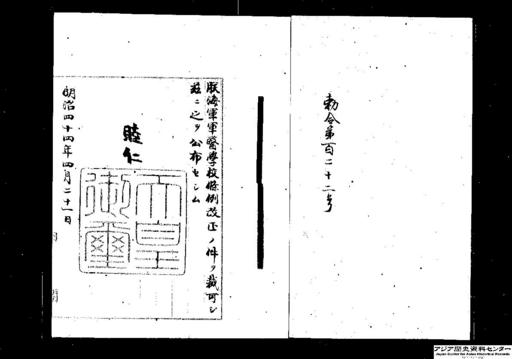 勅令第百二十二号
朕海軍軍醫學校條例改正ノ件ヲ裁可シ
茲ニ之ヲ公布セシム
睦仁
天皇御璽
明治四十四年四月二十一日
アジア歴史資料センター
Japan Center for Asian Historical Records